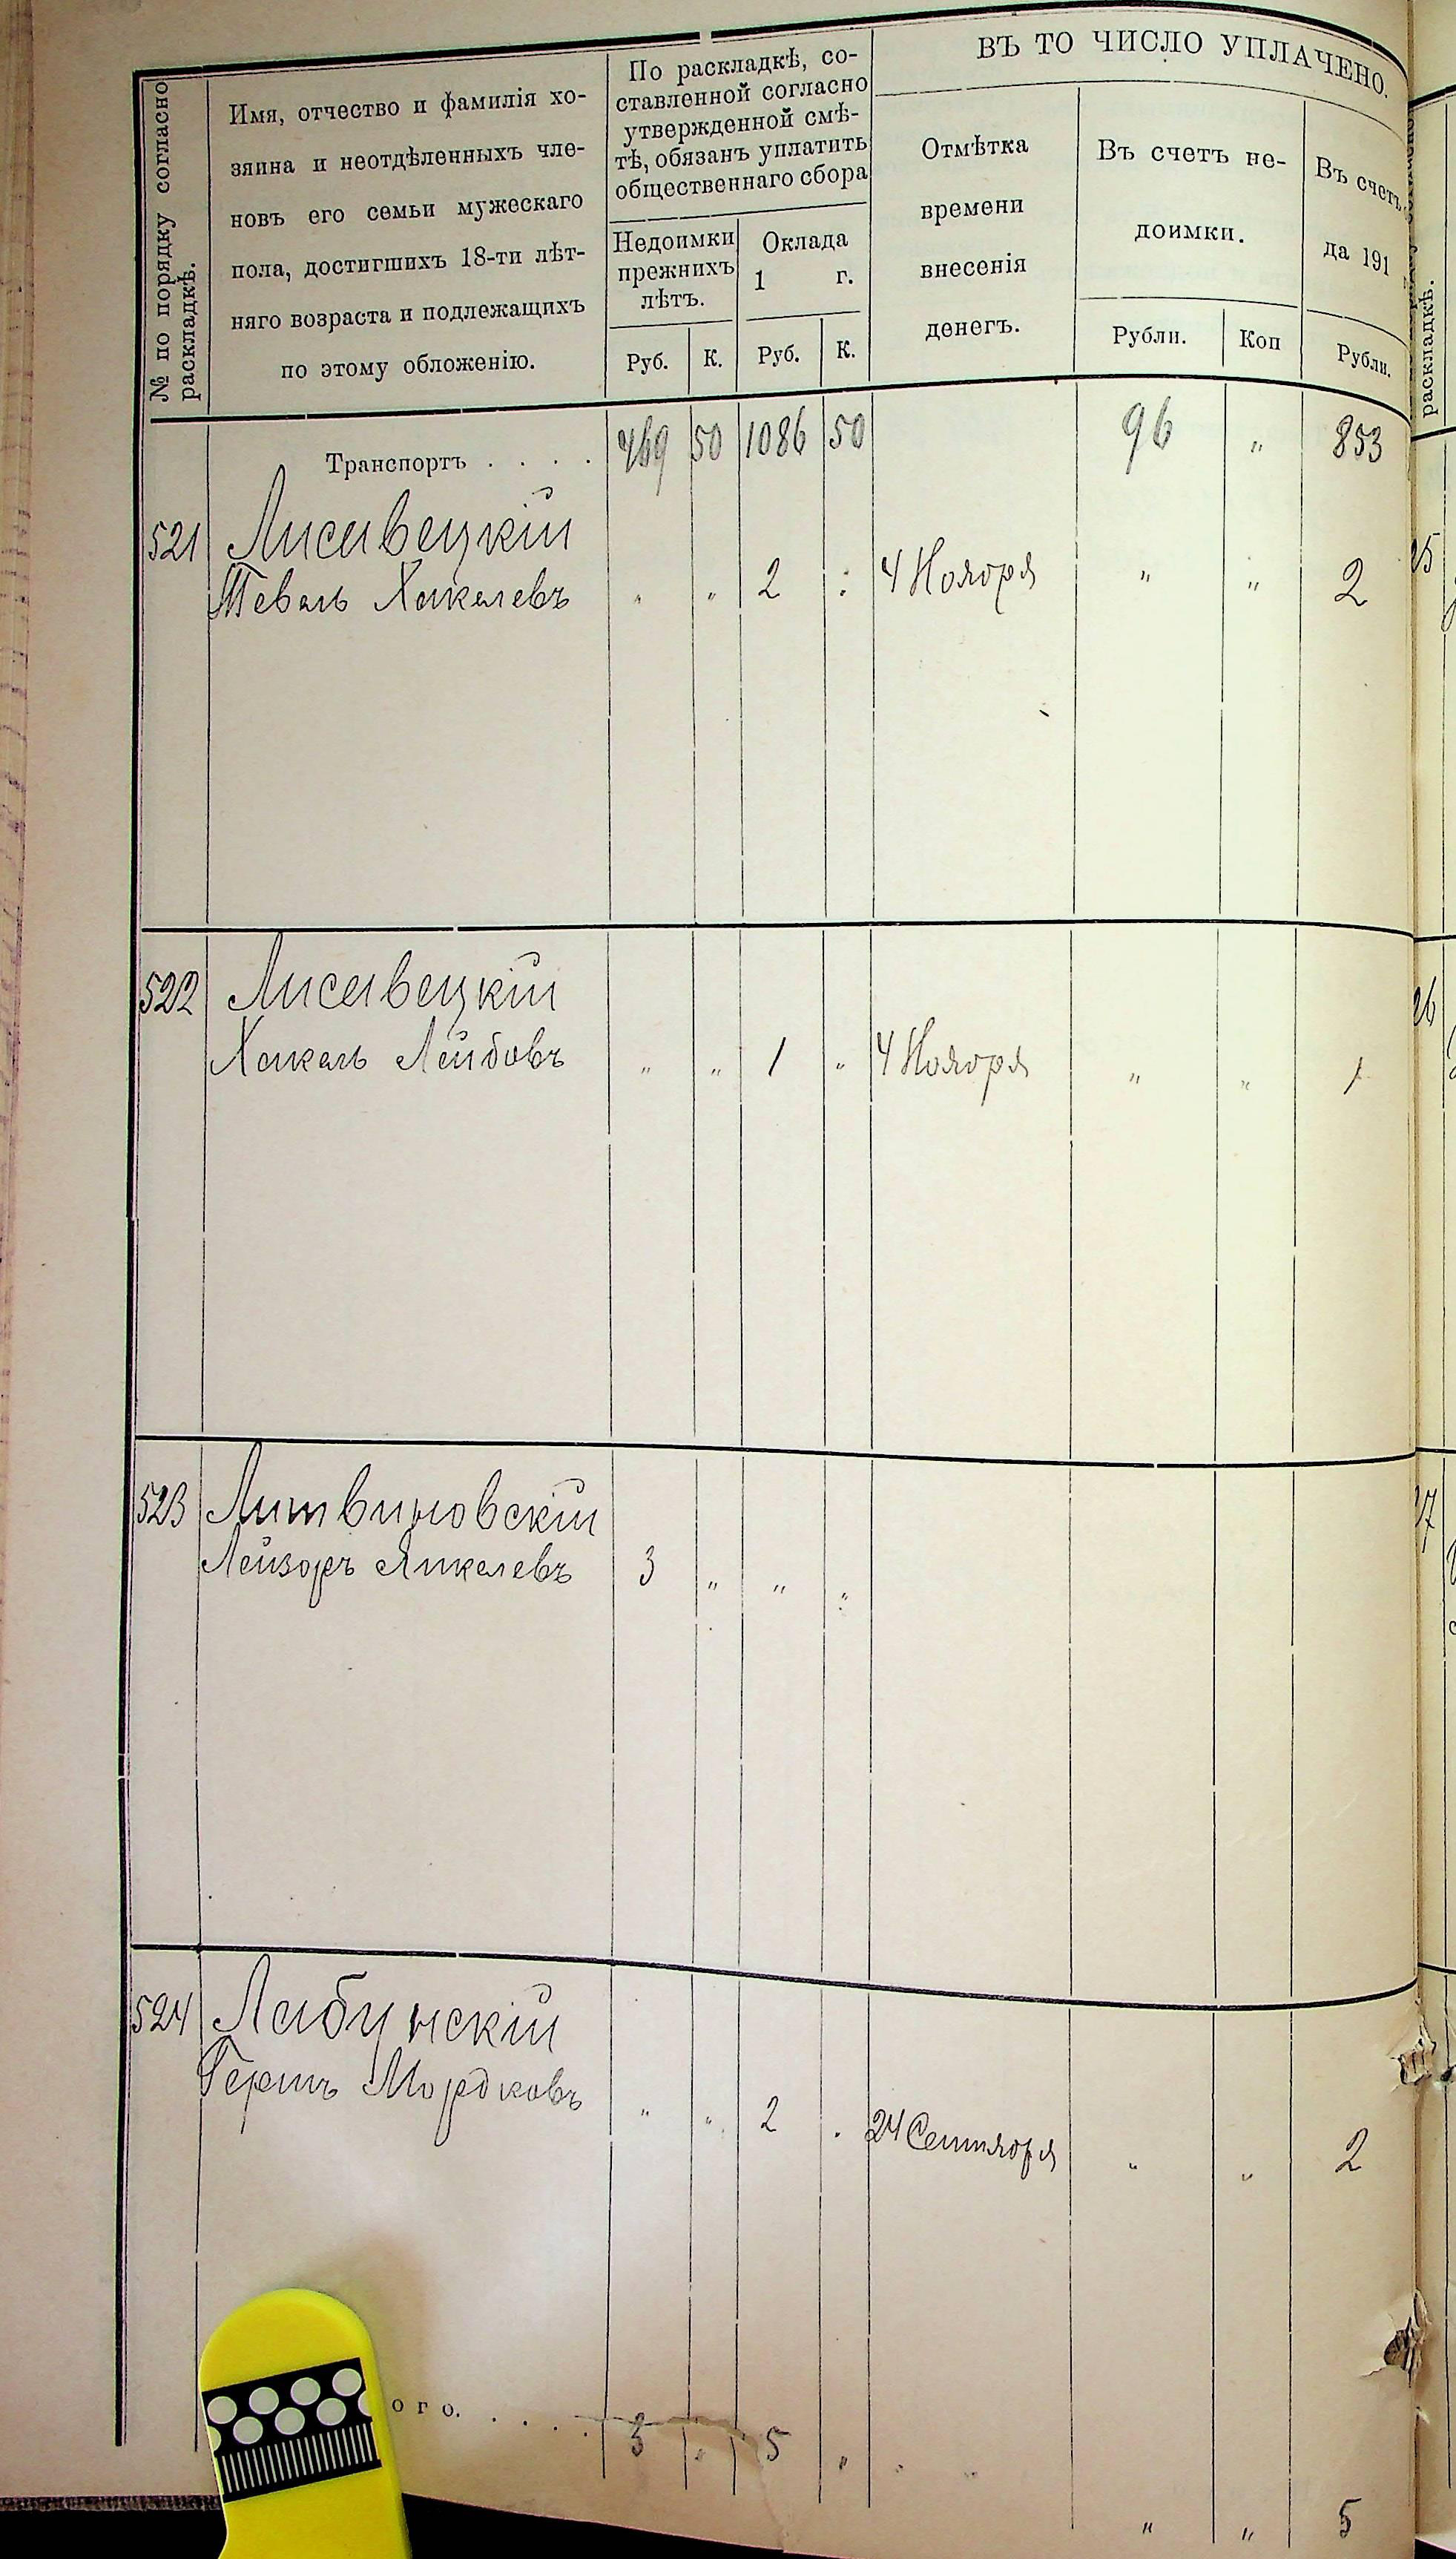 № по порядку согласно
раскладкѣ.
Имя, отчество и фамилія хо-
зяина и неотдѣленныхъ чле-
новъ его семьи мужескаго
пола, достигшихъ 18-ти лѣт-
няго возраста и подлежащихъ
по этому обложенію.
По раскладкѣ, со-
ставленной согласно
утвержденной смѣ-
тѣ, обязанъ уплатить
общественнаго сбора
Недоимки
прежнихъ
лѣтъ.
Руб. К.
Оклада
1 г.
Руб. К.
ВЪ ТО ЧИСЛО УПЛАЧЕНО.
Отмѣтка
времени
внесенія
денегъ.
Въ счетъ не-
доимки.
Рубли. Коп
Въ счетъ
да 191
Рубли.
Транспортъ . . . . 469 50 1086 50 96 „ 853
521 Лисавецкій
Тевель Хакелевъ „ „ 2 : 4 Ноября „ „ 2
522 Лисавецкій
Хакель Лейбовъ „ „ 1 „ 4 Ноября „ „ 1
523 Литвиновскій
Лейзоръ Янкелевъ 3 „ „ „
524 Лабунскій
Гершъ Мордковъ „ „ 2 . 24 Сентября „ „ 2
ого. . . . . 3 „ 5 „
„ „ 5
раскладкѣ.
25
26
27